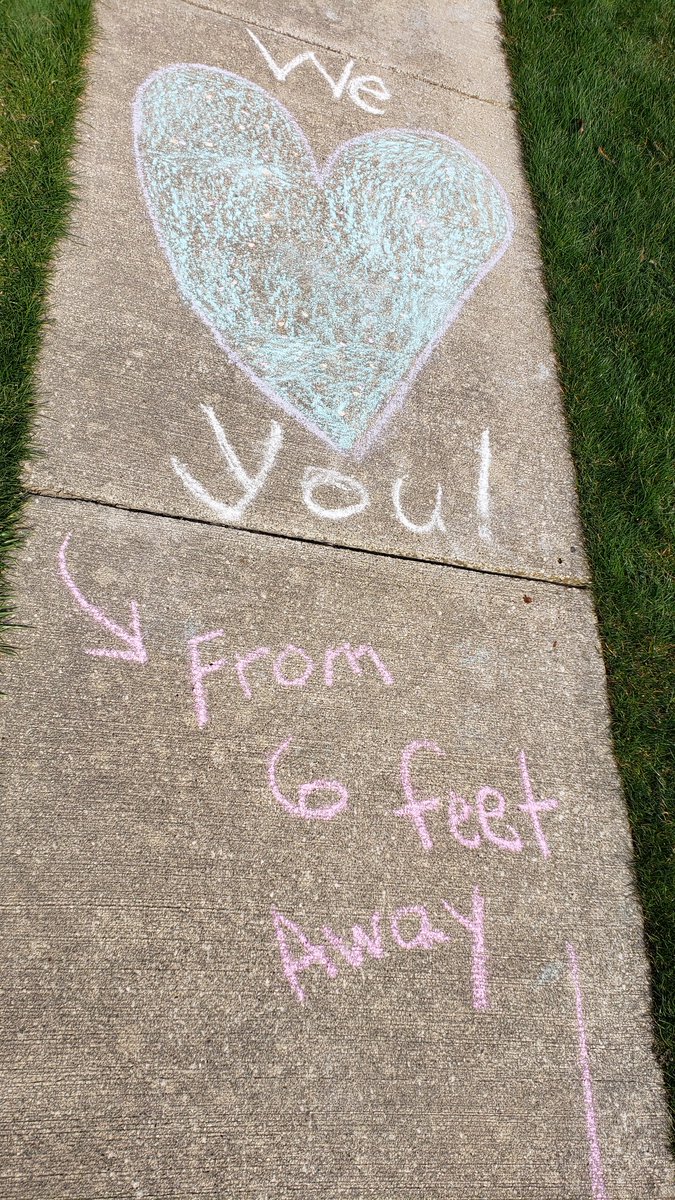 We
you!
From
6 feet
Away